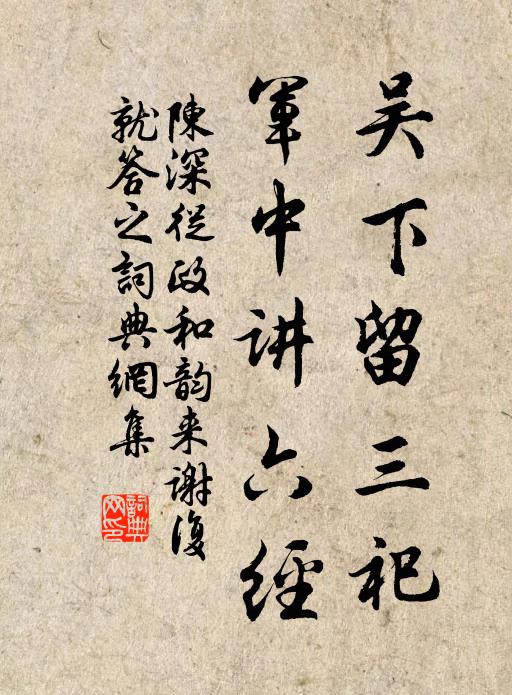 吴下留三祀
军中讲六經
陳深從政和韵来谢復
就答之詞典網集
詞典網印